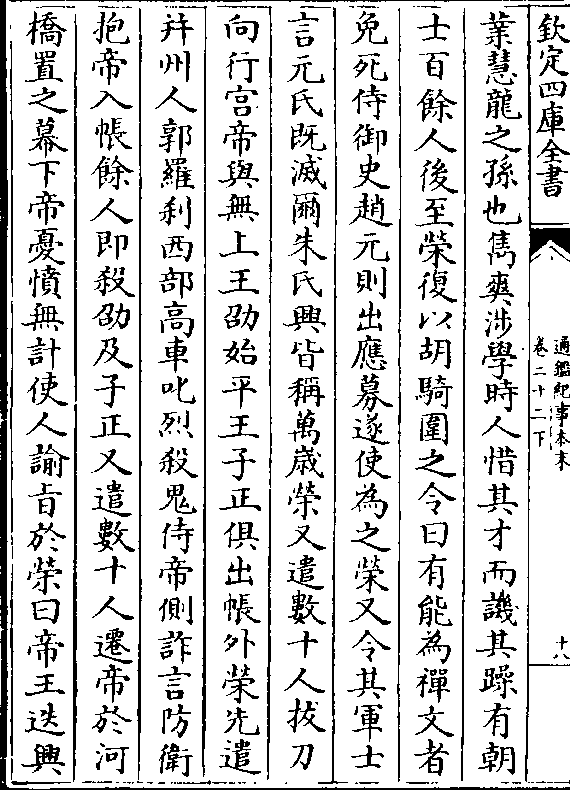 欽定四庫全書
通鑑紀事本末
卷二十二下
十八
業慧龍之孫也儁爽涉學時人惜其才而譏其躁有朝
士百餘人後至榮復以胡騎圍之令曰有能為禪文者
免死侍御史趙元則出應募遂使為之榮又令其軍士
言元氏既滅爾朱氏興皆稱萬歲榮又遣數十人拔刀
向行宮帝與無上王劭始平王子正俱出帳外榮先遣
并州人郭羅刹西部高車叱烈殺鬼侍帝側詐言防衛
抱帝入帳餘人即殺劭及子正又遣數十人遷帝於河
橋置之幕下帝憂憤無計使人諭旨於榮曰帝王迭興